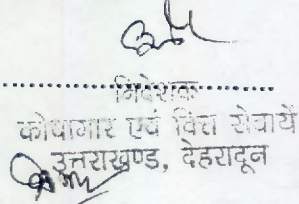 निदेशक
कोषागार एवं वित्त सेवायें
उत्तराखण्ड, देहरादून